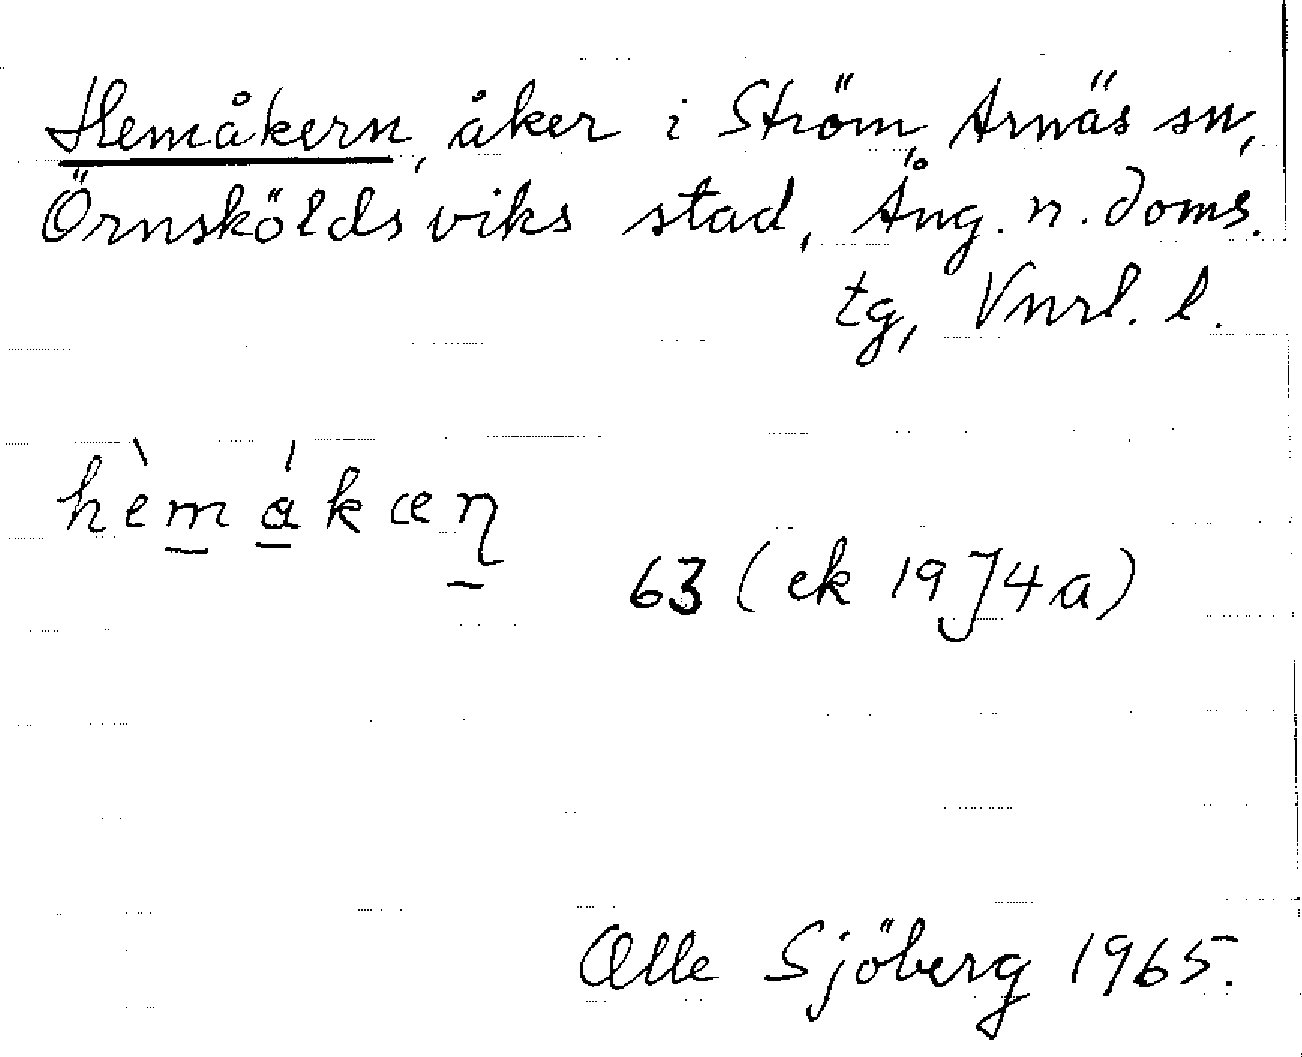 Hemåkern, åker i Ström, Arnäs sn,
Örnsköldsviks stad, Ång. n. doms.
tg, Vnrl. l.
hèmákæn
63 (ek 19J4a)
Olle Sjöberg 1965.